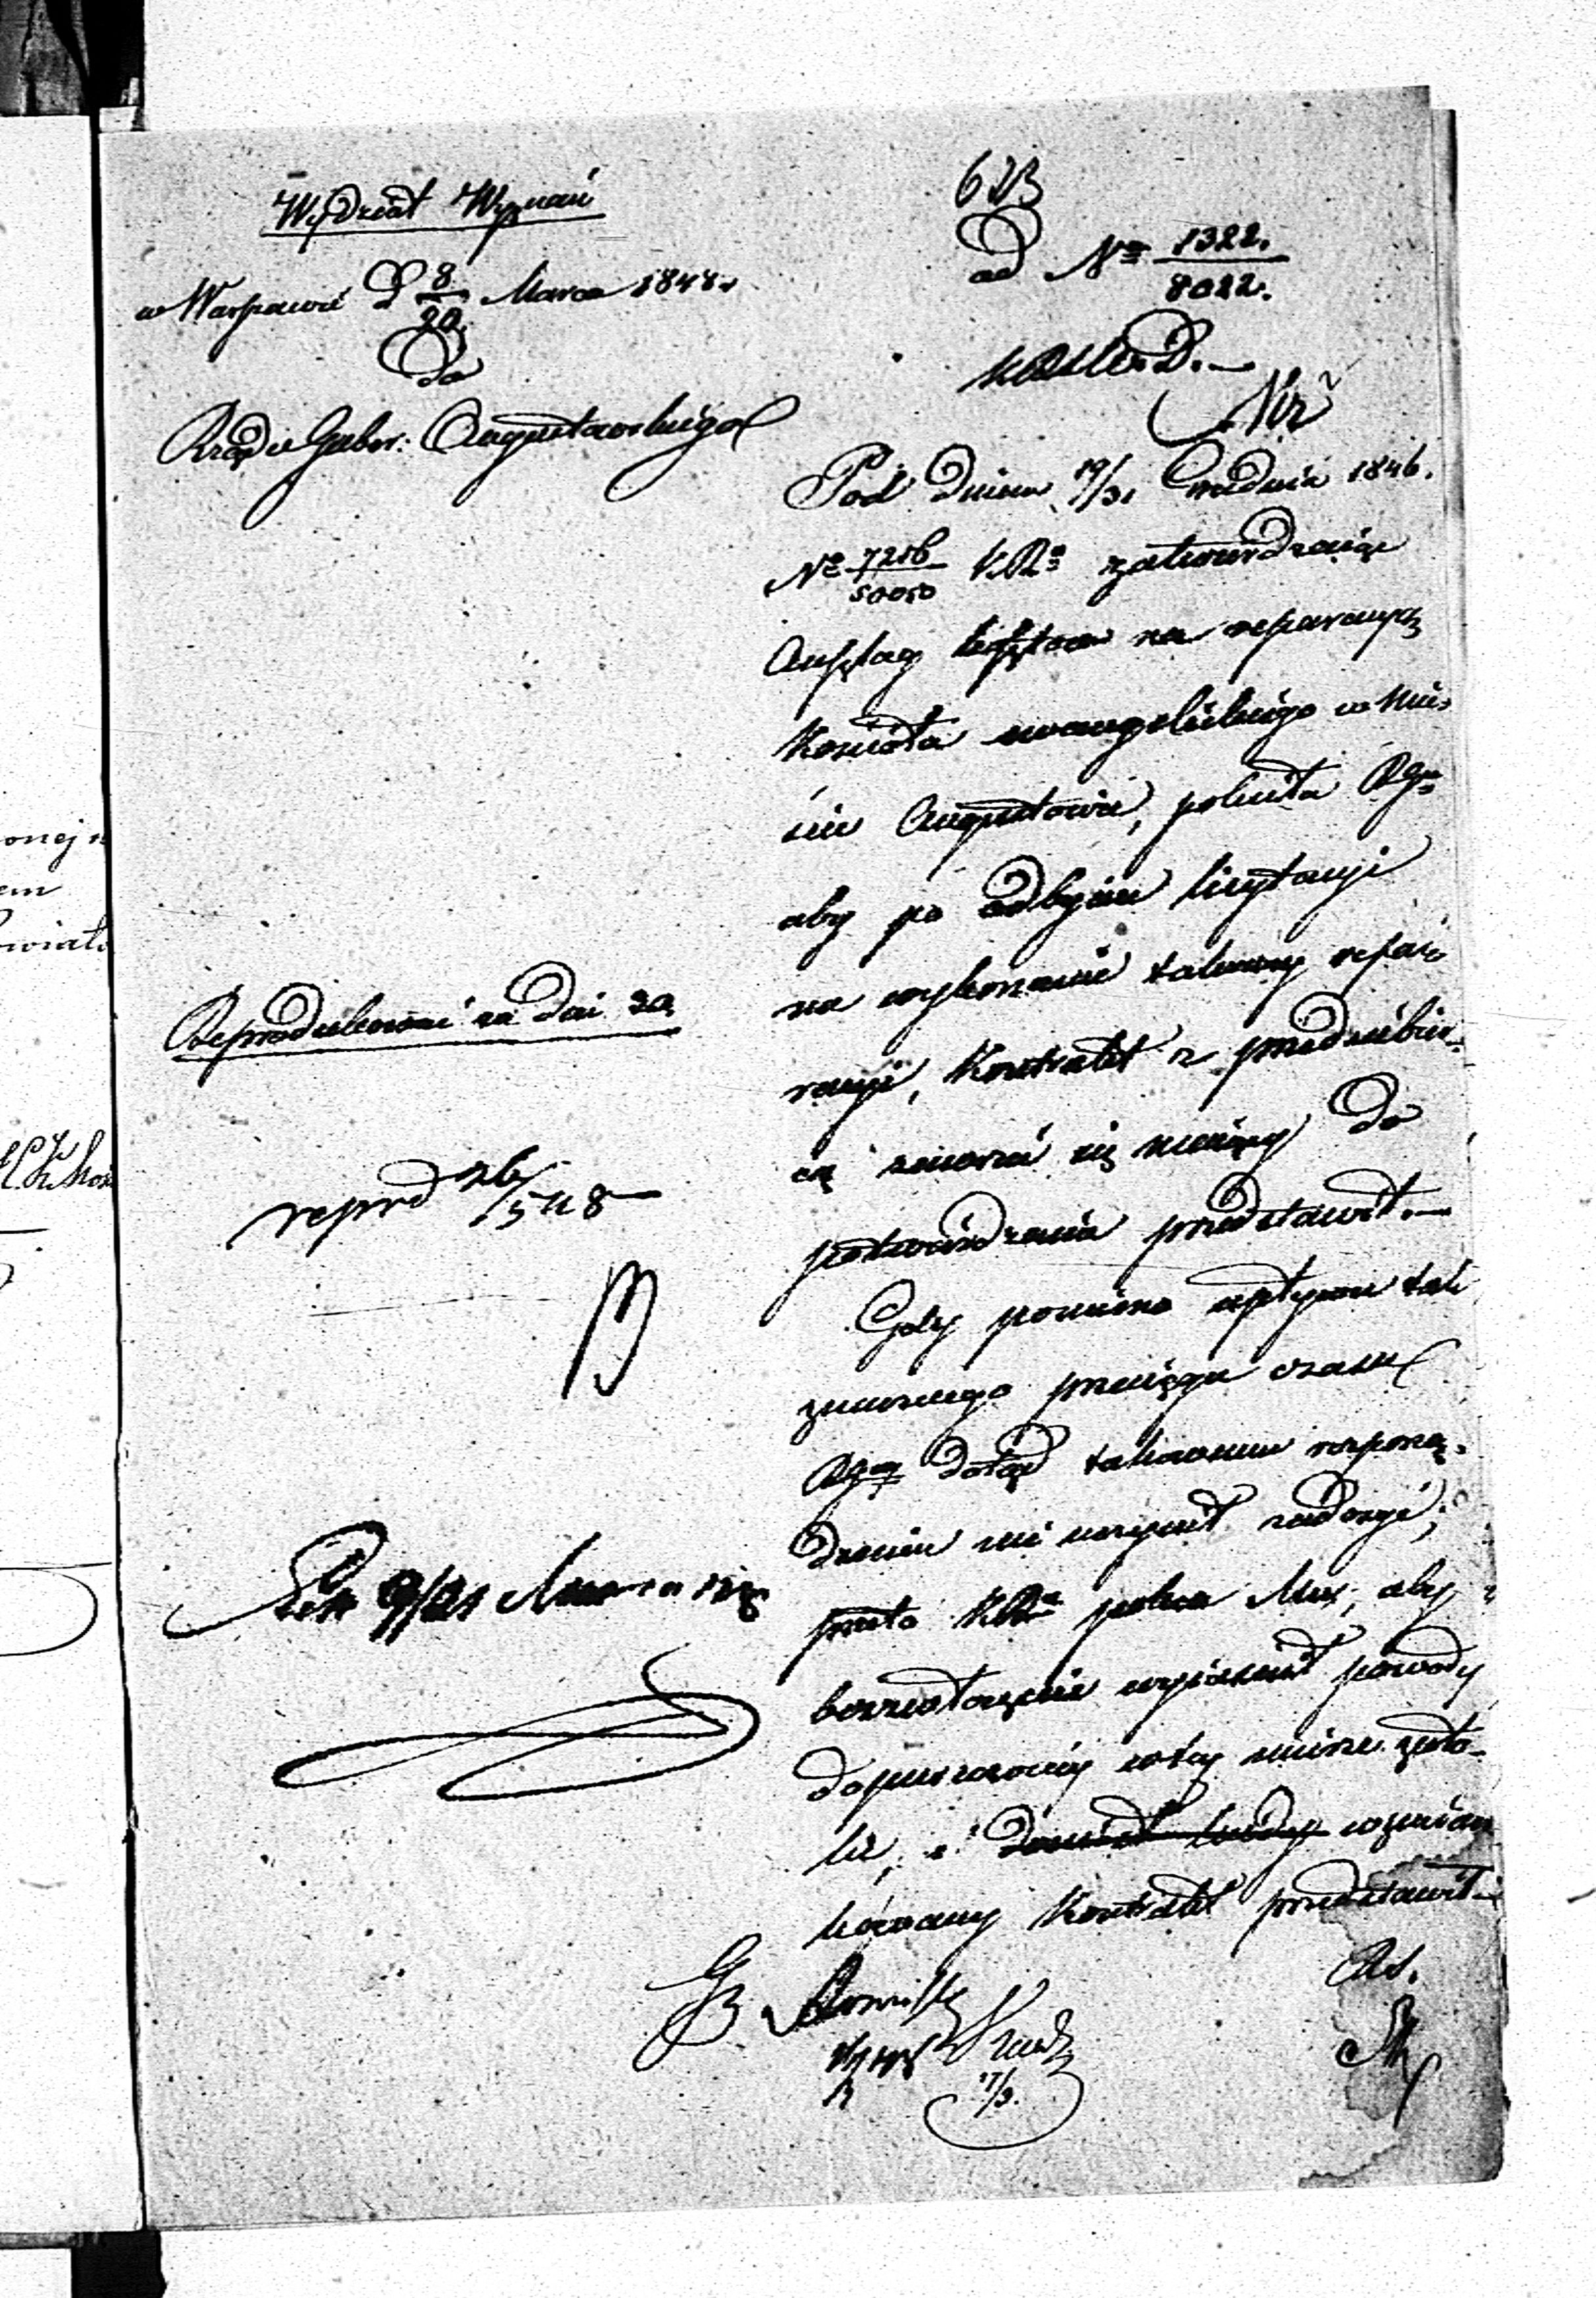 Wydział Wyznań
w Warszawie d 8/20 Marca 1848.
do
Rządu Guber: Augustowskiego
623
ad Nº 1322./8022.
Pod dniem 19/31 Grudnia 1846.
Nº 7256/50050 K.R. zatwierdzając
Anszlag na reparacyą
Kościoła ewangelickiego w mie-
ście Augustowie, poleciła Rząd:
aby po odbyciu licytacyi
na wykonanie takowey repa-
racyi, Kontrakt z przedsiębier-
cą zawrzeć się mający do
potwierdzenia przedstawił.—
Gdy pomimo upływu tak
znacznego przeciągu czasu
Rząd dotąd takowemu rozporzą-
dzeniu nie uczynił zadosyć;
przeto K.R. poleca Mu, aby
bezzwłocznie wyjaśnił powody
dopuszczoney w tey mierze zwło-
ki, i wzmian
kowany Kontrakt przedstawił.
Reprodukować za dni 30
reprod 26/5 48
17/3.